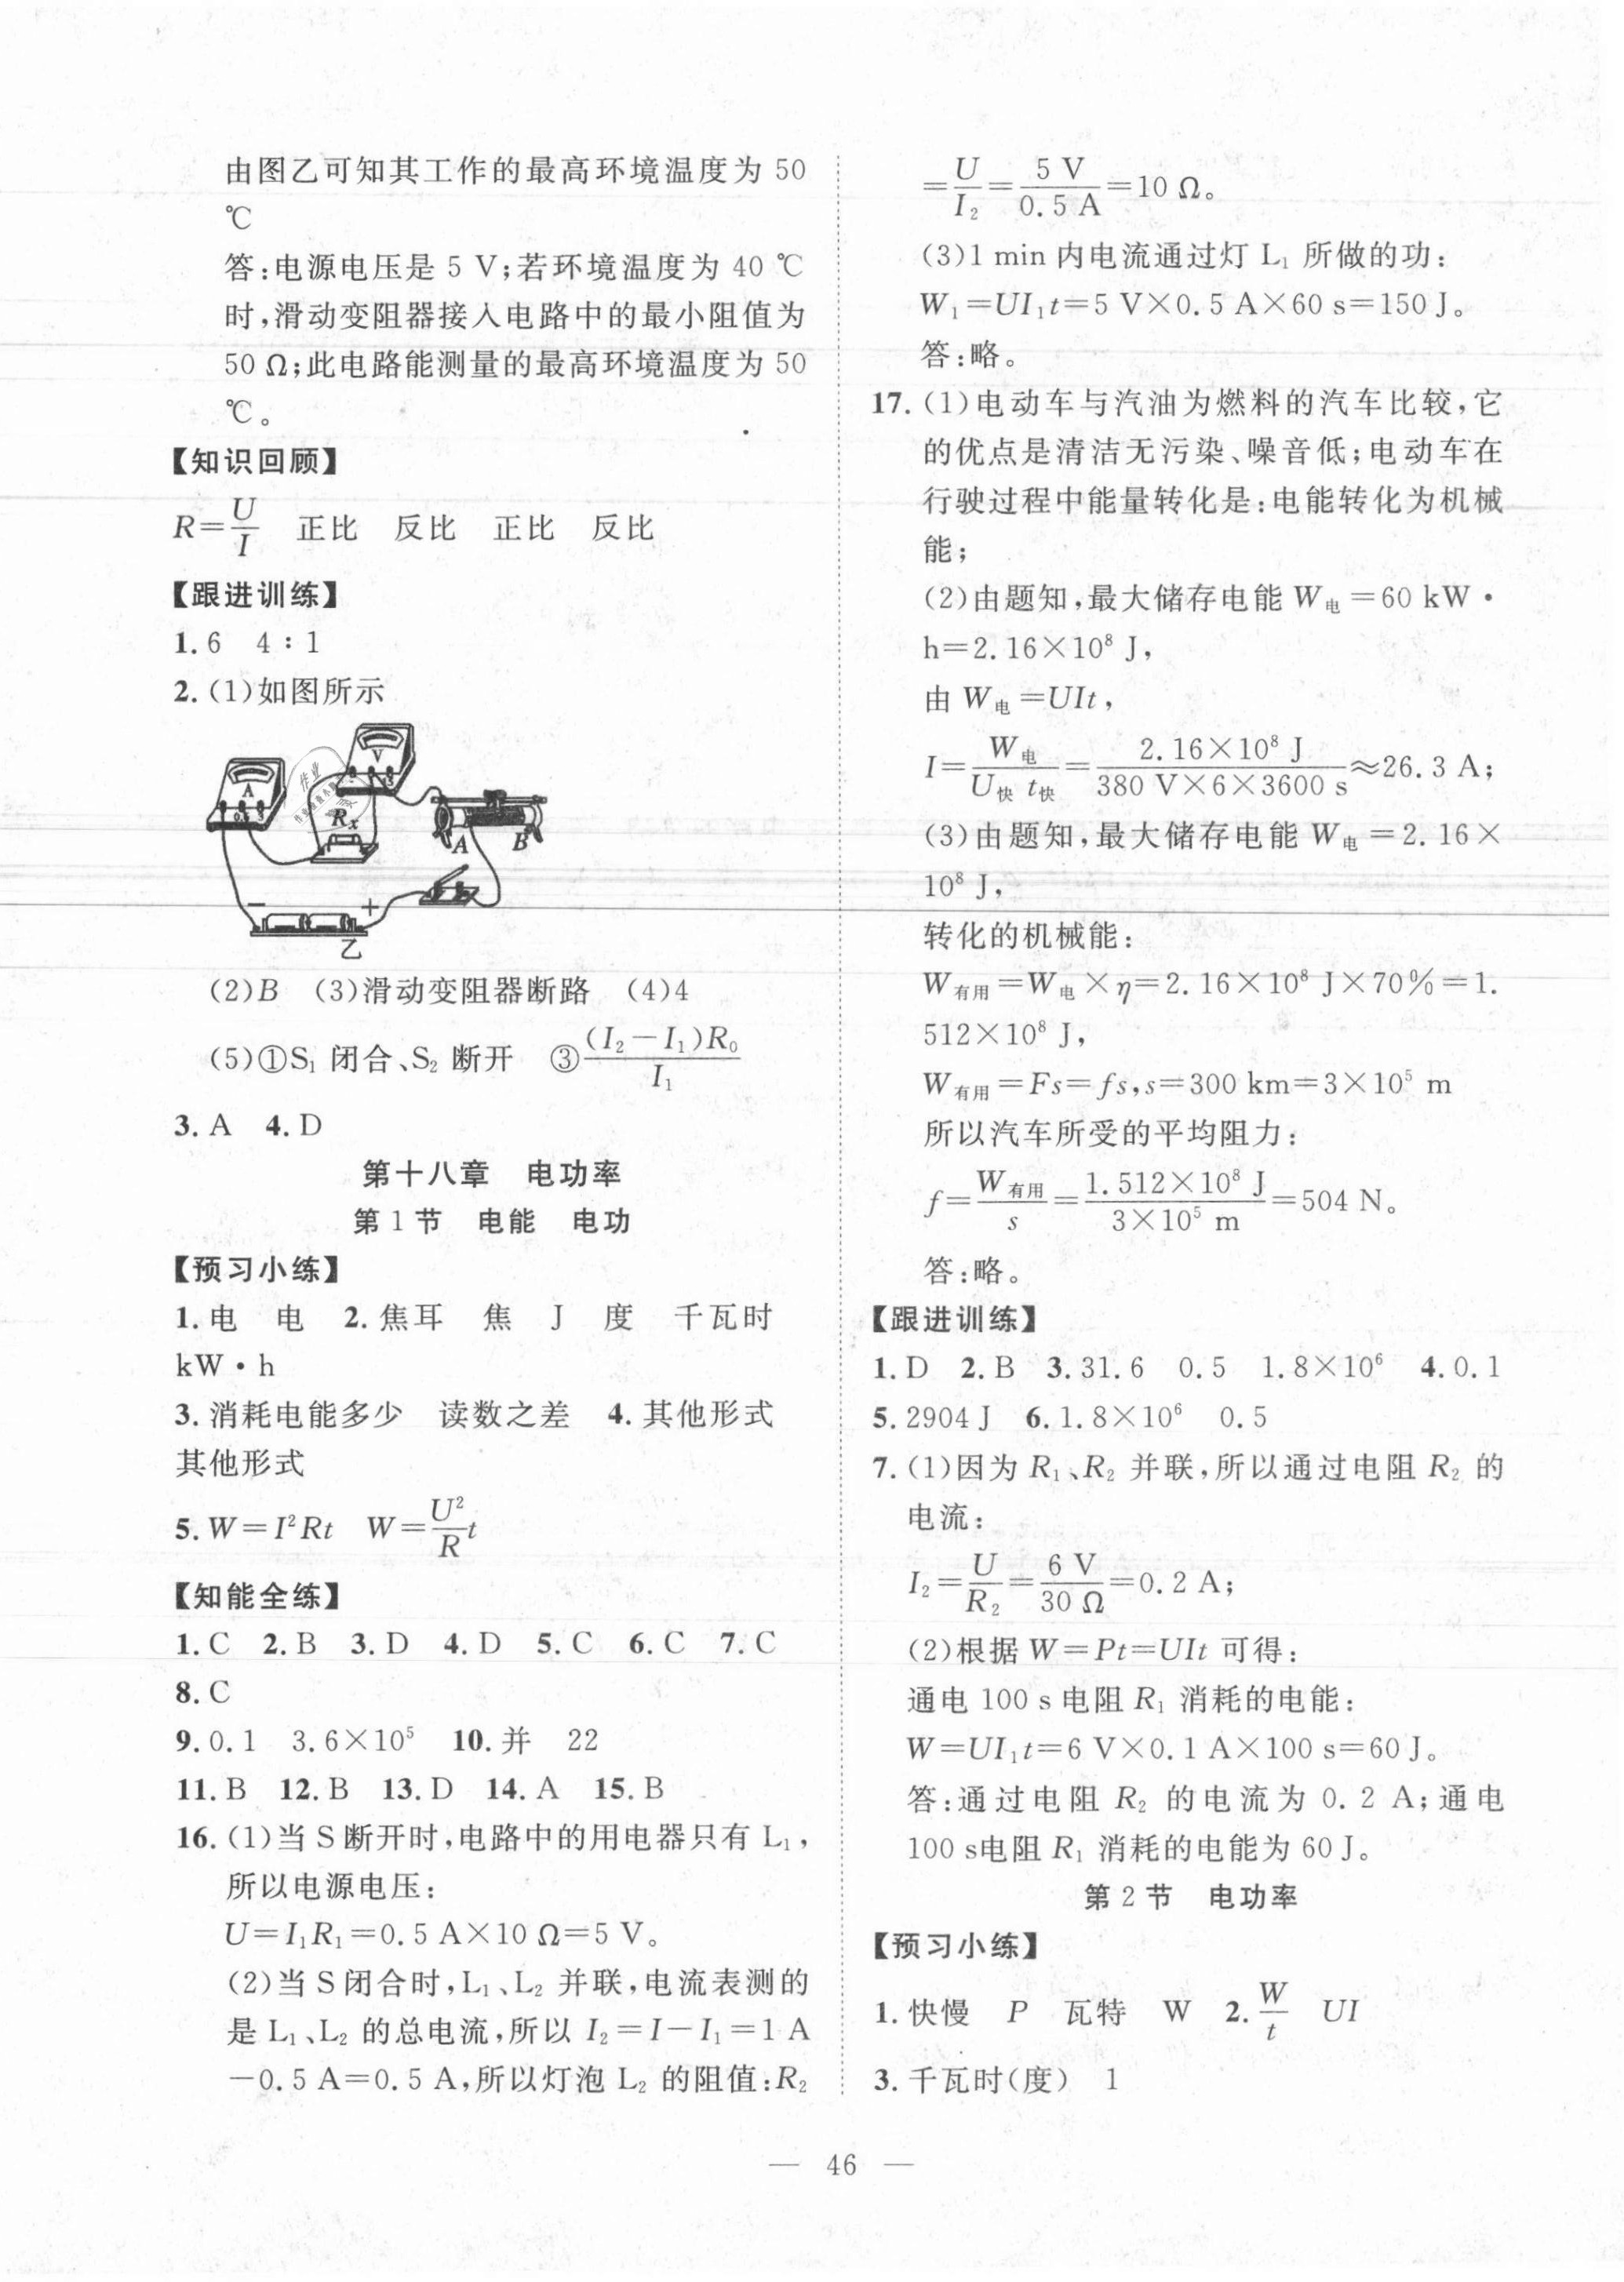 由图乙可知其工作的最高环境温度为 50
℃
答:电源电压是 5 V;若环境温度为 40 ℃
时,滑动变阻器接入电路中的最小阻值为
50 Ω;此电路能测量的最高环境温度为 50
℃。
【知识回顾】
R=U/I 正比 反比 正比 反比
【跟进训练】
1. 6 4∶1
2. (1)如图所示
A
V
Rₓ
A B
− +
乙
(2)B (3)滑动变阻器断路 (4)4
(5)①S₁ 闭合、S₂ 断开 ③(I₂−I₁)R₀/I₁
3. A 4. D
第十八章 电功率
第 1 节 电能 电功
【预习小练】
1. 电 电 2. 焦耳 焦 J 度 千瓦时
kW·h
3. 消耗电能多少 读数之差 4. 其他形式
其他形式
5. W=I²Rt W=U²/R t
【知能全练】
1. C 2. B 3. D 4. D 5. C 6. C 7. C
8. C
9. 0.1 3.6×10⁵ 10. 并 22
11. B 12. B 13. D 14. A 15. B
16. (1)当 S 断开时,电路中的用电器只有 L₁,
所以电源电压:
U=I₁R₁=0.5 A×10 Ω=5 V。
(2)当 S 闭合时,L₁、L₂ 并联,电流表测的
是 L₁、L₂ 的总电流,所以 I₂=I−I₁=1 A
−0.5 A=0.5 A,所以灯泡 L₂ 的阻值:R₂
=U/I₂=5 V/0.5 A=10 Ω。
(3)1 min 内电流通过灯 L₁ 所做的功:
W₁=UI₁t=5 V×0.5 A×60 s=150 J。
答:略。
17. (1)电动车与汽油为燃料的汽车比较,它
的优点是清洁无污染、噪音低;电动车在
行驶过程中能量转化是:电能转化为机械
能;
(2)由题知,最大储存电能 W电=60 kW·
h=2.16×10⁸ J,
由 W电=UIt,
I=W电/U快 t快=2.16×10⁸ J/380 V×6×3600 s≈26.3 A;
(3)由题知,最大储存电能 W电=2.16×
10⁸ J,
转化的机械能:
W有用=W电×η=2.16×10⁸ J×70%=1.
512×10⁸ J,
W有用=Fs=fs,s=300 km=3×10⁵ m
所以汽车所受的平均阻力:
f=W有用/s=1.512×10⁸ J/3×10⁵ m=504 N。
答:略。
【跟进训练】
1. D 2. B 3. 31.6 0.5 1.8×10⁶ 4. 0.1
5. 2904 J 6. 1.8×10⁶ 0.5
7. (1)因为 R₁、R₂ 并联,所以通过电阻 R₂ 的
电流:
I₂=U/R₂=6 V/30 Ω=0.2 A;
(2)根据 W=Pt=UIt 可得:
通电 100 s 电阻 R₁ 消耗的电能:
W=UI₁t=6 V×0.1 A×100 s=60 J。
答:通过电阻 R₂ 的电流为 0.2 A;通电
100 s电阻 R₁ 消耗的电能为 60 J。
第 2 节 电功率
【预习小练】
1. 快慢 P 瓦特 W 2. W/t UI
3. 千瓦时(度) 1
— 46 —